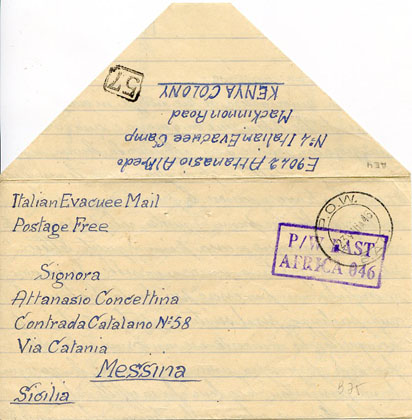 57
E9042 Attanasio Alfredo
N°1 Italian Evacuee Camp
Mackinnon Road
KENYA COLONY
Italian Evacuee Mail
Postage Free
P.O.W.
P/W EAST
AFRICA 046
Signora
Attanasio Concettina
Contrada Catalano N°58
Via Catania
Messina
Sicilia